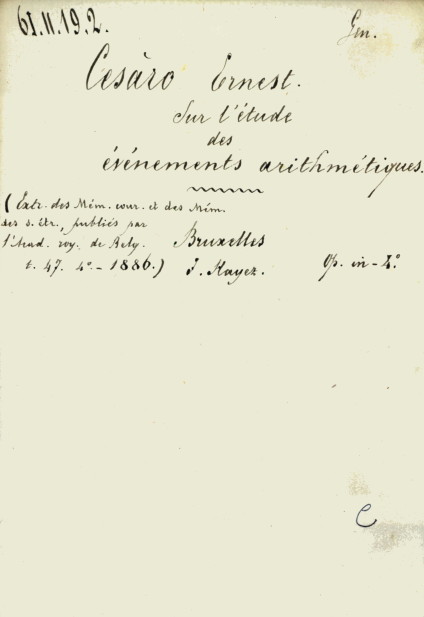 61.II.19.2.
Gen.
Cesàro Ernest.
Sur l'étude
des
événements arithmétiques.
(Extr. des Mém. cour. et des Mém.
des s. étr., publiés par
l'Acad. roy. de Belg.
Bruxelles
t. 47. 4°. - 1886.)
F. Hayez.
Op. in-4°.
C